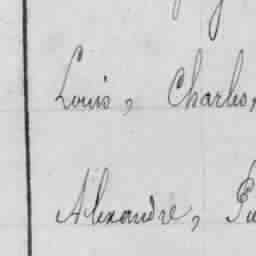 Louis, Charles,
Alexandre,